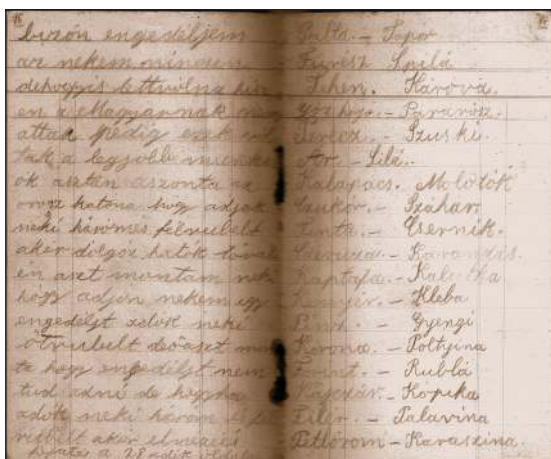 bizón engedéljem
az nekem nincsen
dehogyis lettvólna
én a Magyarnak meg
attak pedig ezek vól
tak a legjobb
ők asztán aszonta az
orosz katona hogy adjak
neki háromés félrubelt
akór dólgóz hatók tóvab
én aszt montam nek
hógy adjón nekem egy
engedéljt adók neki
ötrubelt deoaszt mon
ta hogy engedéljt nem
tud adni de hogyha
adók neki három és
rubelt akór elmegyés
a 28 adik
Balta. - Topor
Fürész Spilá
Tehen. Kárová.
Gőzhajó. - Páravóz
Szuski.
Ár. - Silá.
Kalapács. Molotók
Czukór. - Száhár
Tinta. - Csernik.
Czeruza. - Karandás.
Kaptafa. - Kalotka
Kenyér. - Hleba
Pénz. - Gyengi
Korona. - Póltyina
Forint. - Rublá
Kajczár. - Kópika
Filér. - Palavina
Petloróm - Karaszina.